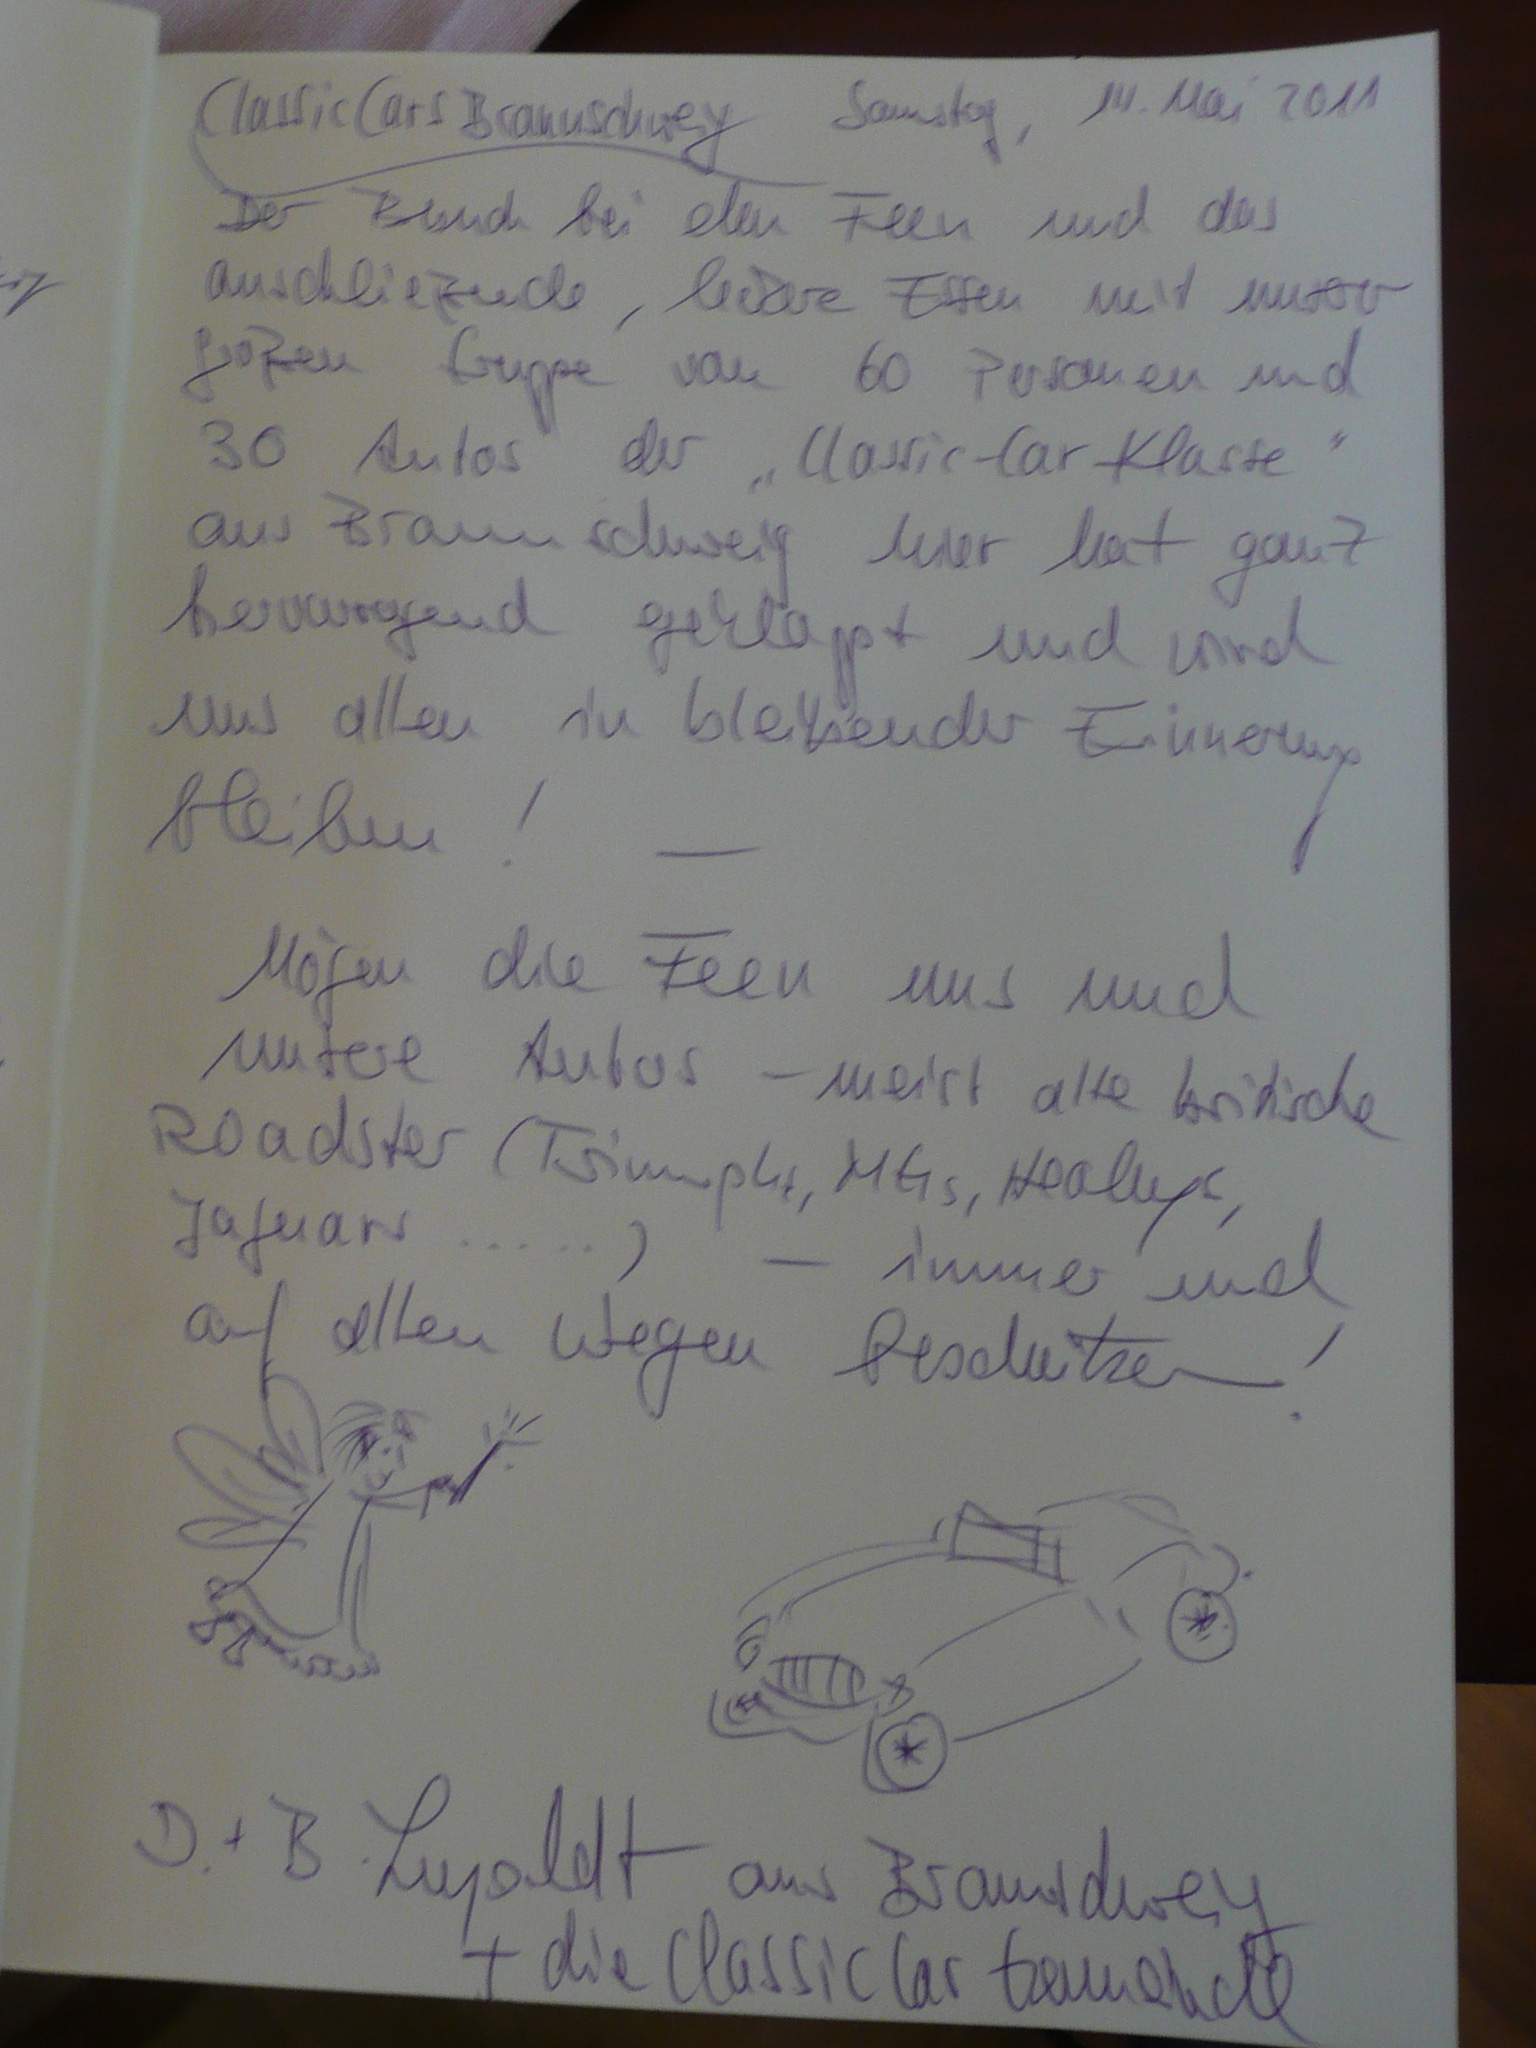 ClassicCars Braunschweig Samstag, 14. Mai 2011
Der Besuch bei den Feen und das
anschließende, leckere Essen mit unserer
großen Gruppe von 60 Personen und
30 Autos der „Classic-Car-Klasse“
aus Braunschweig hier hat ganz
hervorragend geklappt und wird
uns allen in bleibender Erinnerung
bleiben! —
Mögen die Feen uns und
unsere Autos – meist alte britische
Roadster (Triumphs, MGs, Healeys,
Jaguars .....) – immer und
auf allen Wegen beschützen!
D. + B. Lupoldt aus Braunschweig
+ die ClassicCar Gemeinde